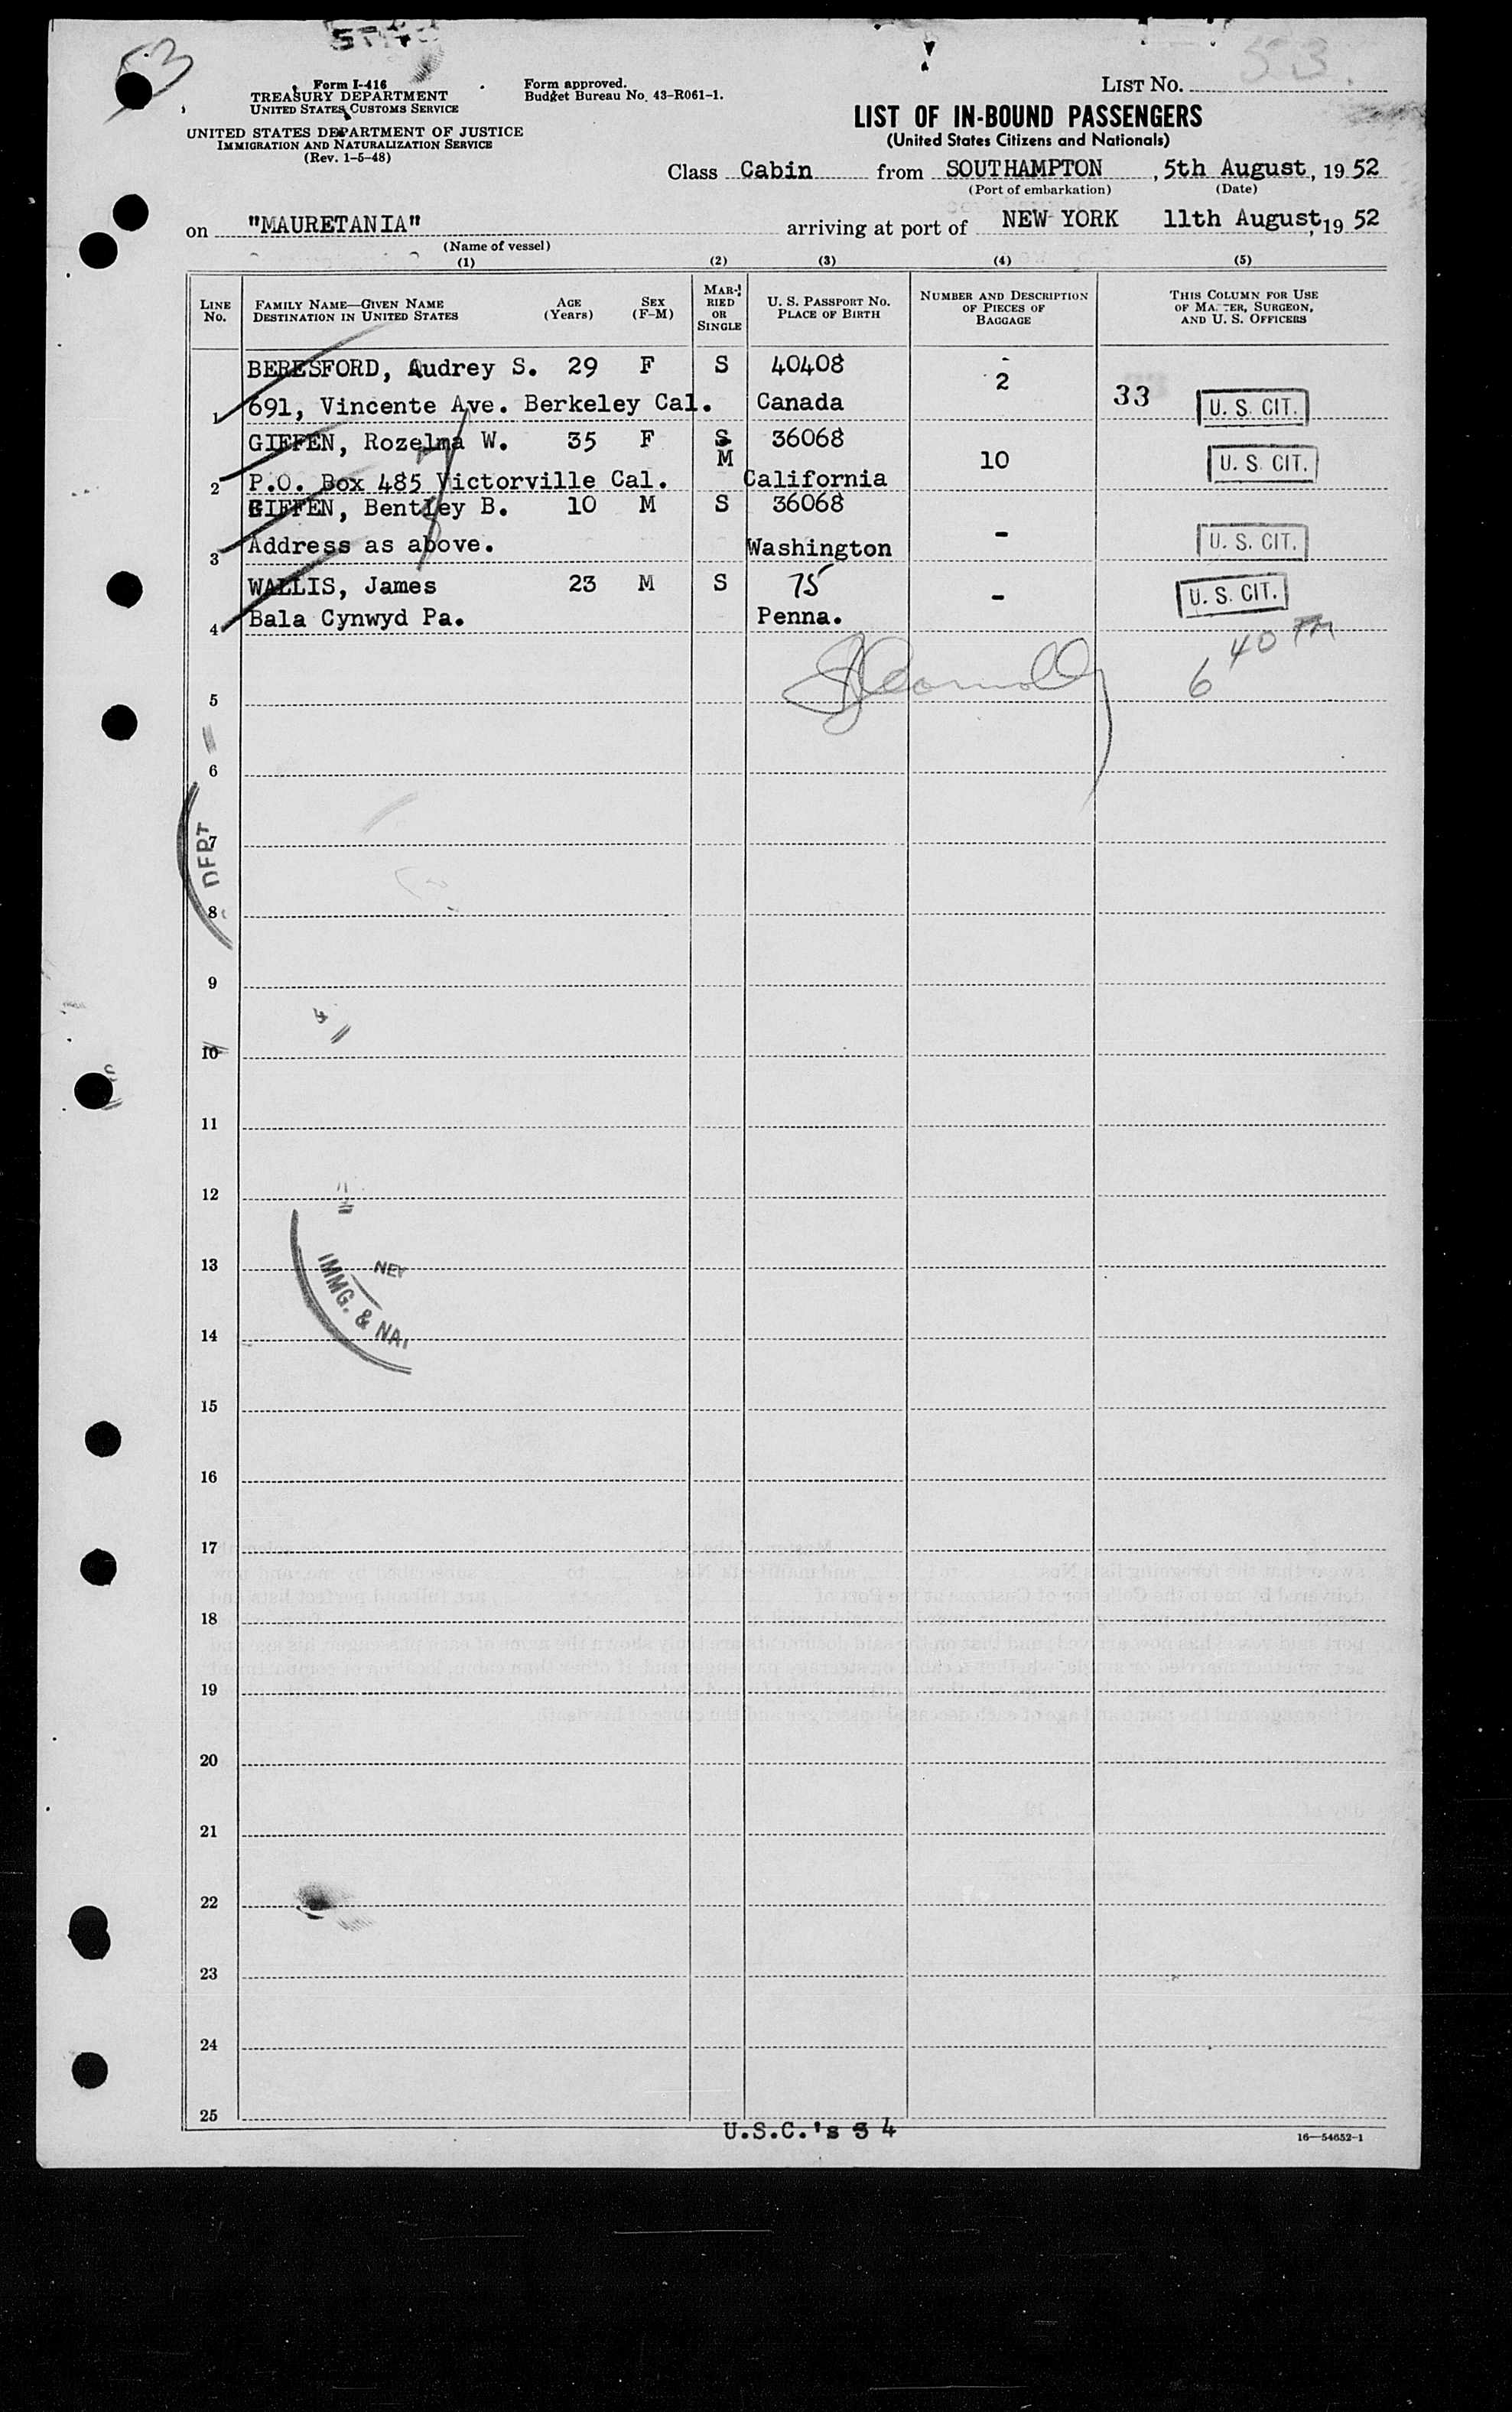 53
53.
Form I-416
TREASURY DEPARTMENT
UNITED STATES CUSTOMS SERVICE
UNITED STATES DEPARTMENT OF JUSTICE
IMMIGRATION AND NATURALIZATION SERVICE
(Rev. 1-5-48)
Form approved.
Budget Bureau No. 43-R061-1.
LIST NO.
LIST OF IN-BOUND PASSENGERS
(United States Citizens and Nationals)
Class Cabin from SOUTHAMPTON, 5th August, 1952
(Port of embarkation) (Date)
on "MAURETANIA" arriving at port of NEW YORK 11th August, 1952
(Name of vessel)
(1) (2) (3) (4) (5)
LINE NO.
FAMILY NAME—GIVEN NAME
DESTINATION IN UNITED STATES
AGE (Years)
SEX (F-M)
MARRIED OR SINGLE
U. S. PASSPORT NO.
PLACE OF BIRTH
NUMBER AND DESCRIPTION
OF PIECES OF
BAGGAGE
THIS COLUMN FOR USE
OF MASTER, SURGEON,
AND U. S. OFFICERS
BERESFORD, Audrey S. 29 F S 40408 -
1 691, Vincente Ave. Berkeley Cal. Canada 2 33 U. S. CIT.
GIFFEN, Rozelma W. 35 F S M 36068
2 P.O. Box 485 Victorville Cal. California 10 U. S. CIT.
GIFFEN, Bentley B. 10 M S 36068
3 Address as above. Washington - U. S. CIT.
WALLIS, James 23 M S 75
4 Bala Cynwyd Pa. Penna. - U. S. CIT.
6 40 PM
5
6
7
DEPT
8
9
10
11
12
13
NEW
IMMG. & NA
14
15
16
17
18
19
20
21
22
23
24
25
U.S.C.'s 3 4
16—54652-1